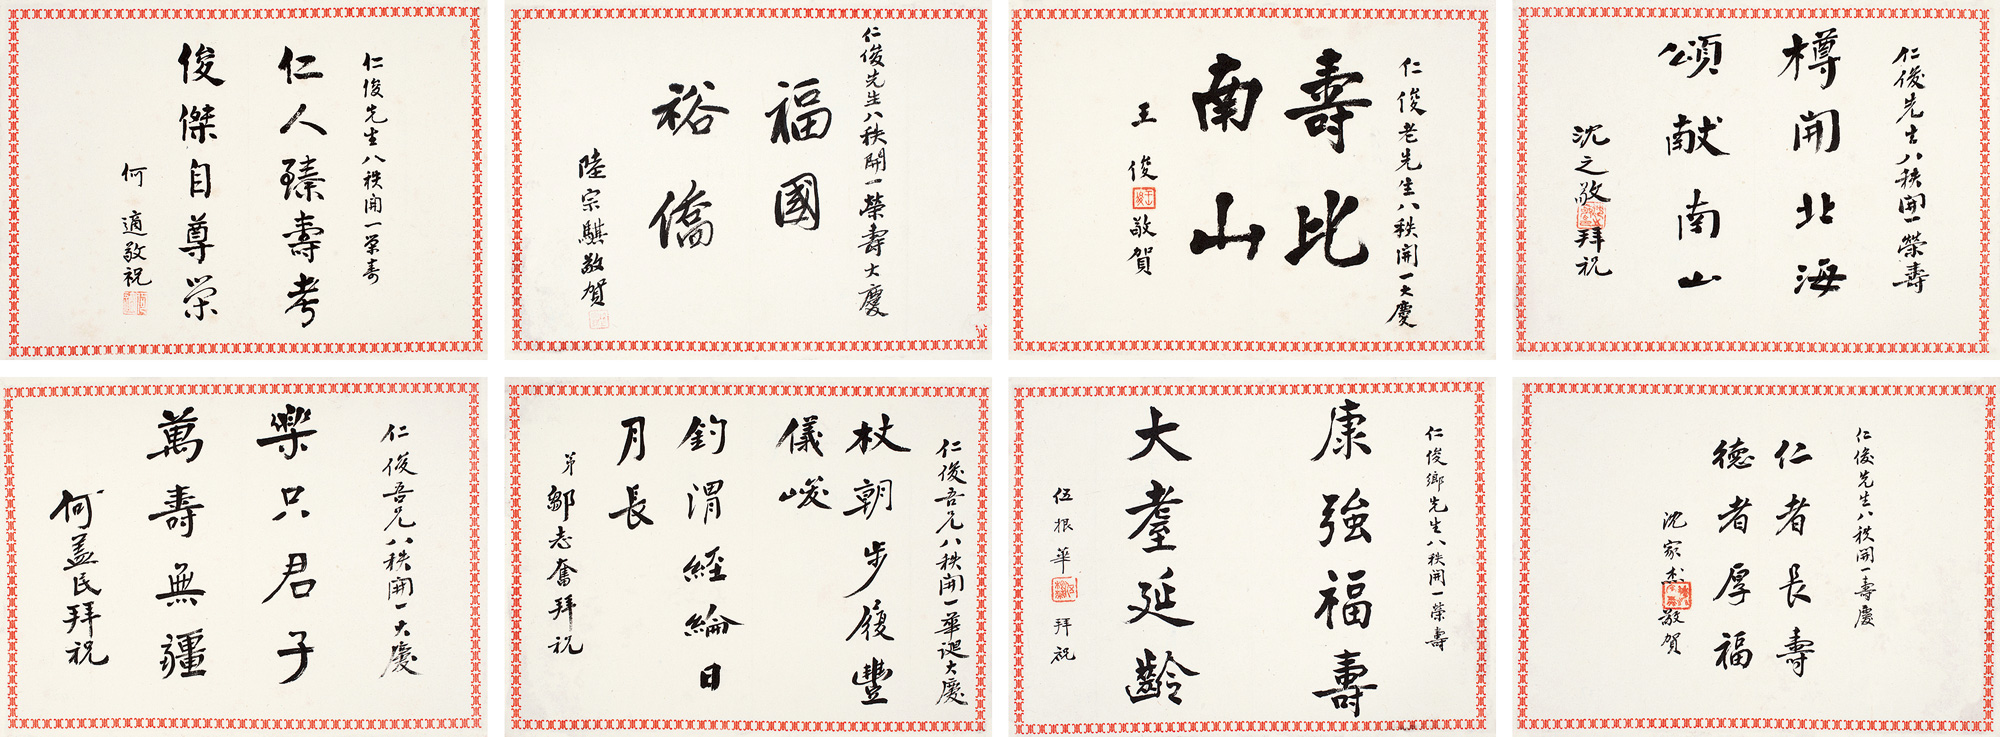 仁俊先生八秩開一榮壽
仁人臻壽考
俊傑自尊榮
何適敬祝
仁俊先生八秩開一榮壽大慶
福國
裕僑
陸宗騏敬賀
仁俊老先生八秩開一大慶
壽比
南山
王俊敬賀
仁俊先生八秩開一榮壽
樽開北海
頌献南山
沈之敬拜祝
仁俊吾兄八秩開一大慶
樂只君子
萬壽無疆
何孟民拜祝
仁俊吾兄八秩開一華誕大慶
杖朝步履豐
儀峻
釣渭經綸日
月長
弟鄒志奮拜祝
仁俊鄉先生八秩開一榮壽
康強福壽
大耋延齡
伍根華拜祝
仁俊先生八秩開一壽慶
仁者長壽
德者厚福
沈家杰敬賀